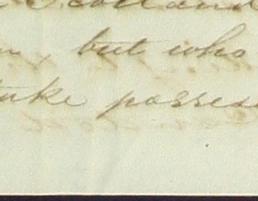 Scotland
, but who
take possess